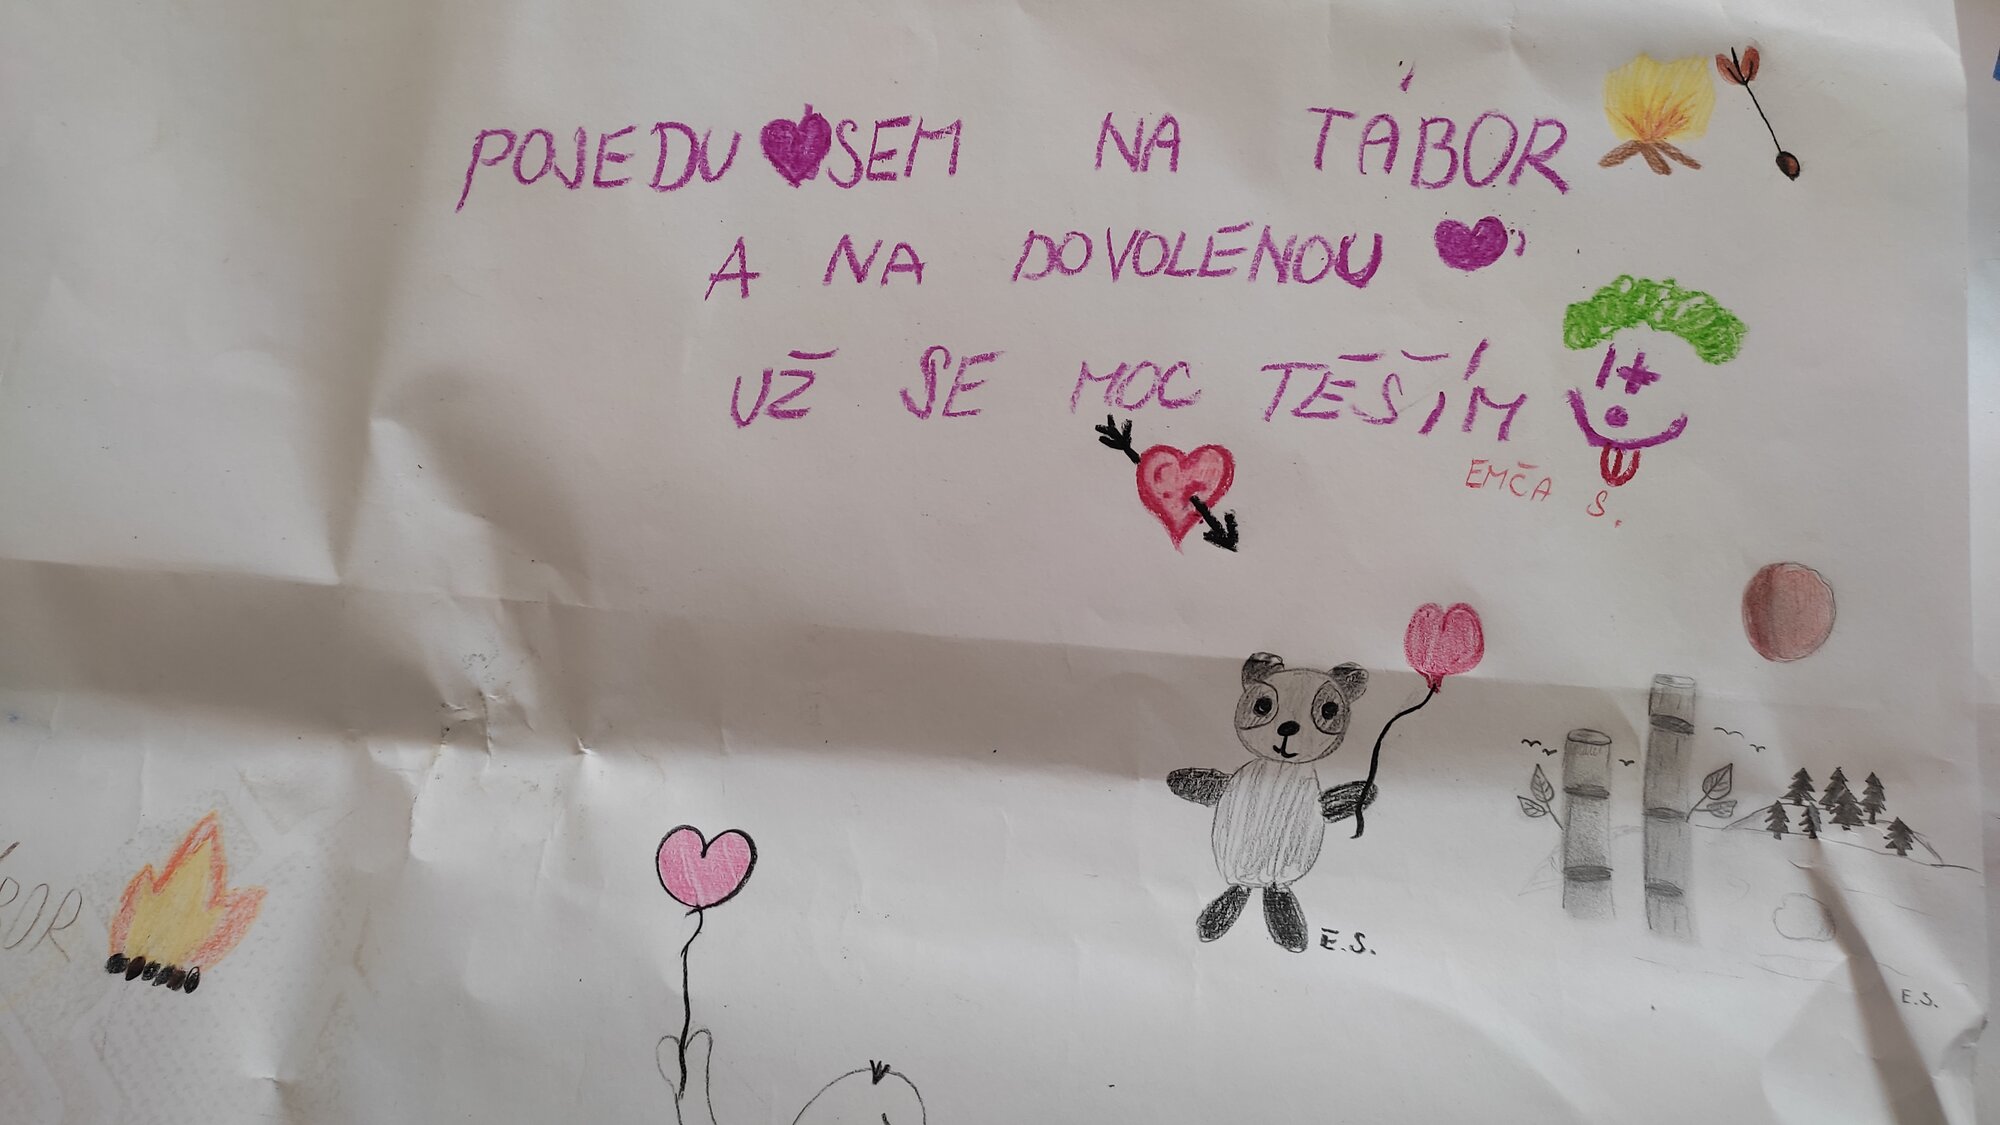 POJEDU SEM NA TÁBOR
A NA DOVOLENOU
UŽ SE MOC TĚŠÍM
EMČA S.
E.S.
E.S.